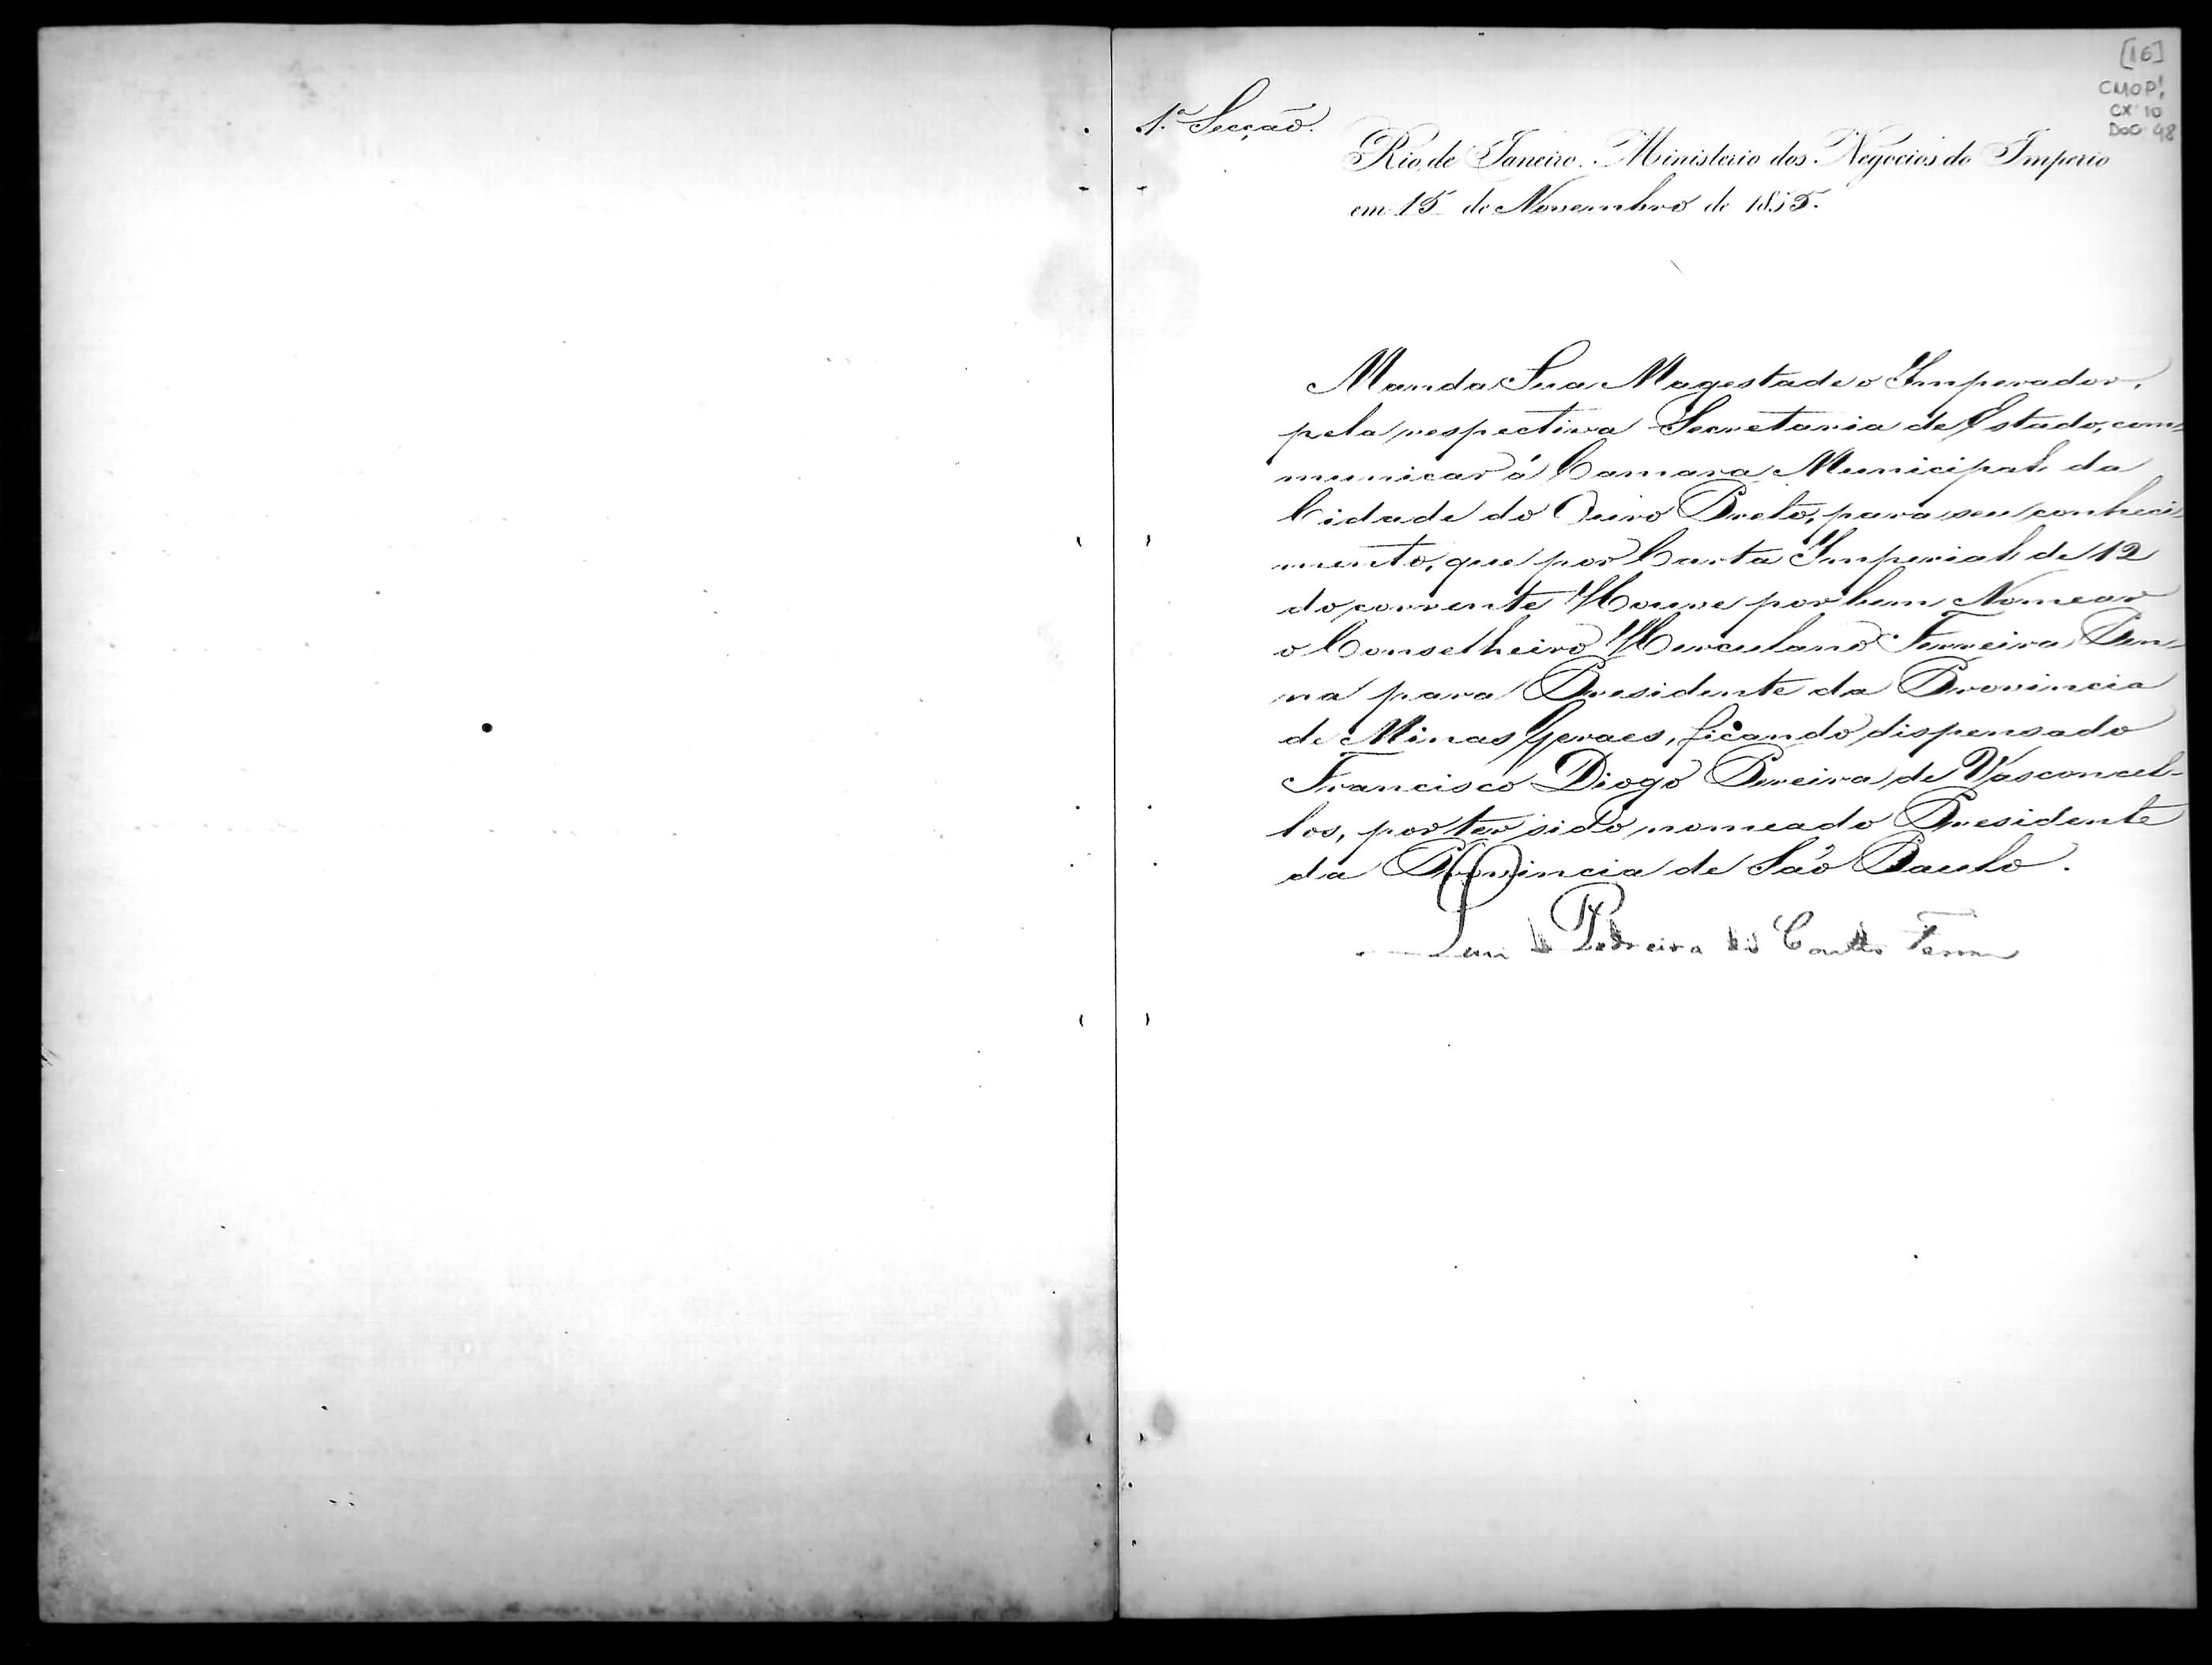 [16]
CMOP
CX 10
DOC 48
1.ª Secção.
Rio de Janeiro. Ministerio dos Negocios do Imperio
em 15 de Novembro de 1855.
Manda Sua Magestade o Imperador,
pela respectiva Secretaria de Estado, com-
municar á Camara Municipal da
Cidade do Ouro Preto, para seu conheci-
mento, que por Carta Imperial de 12
do corrente Houve por bem Nomear
o Conselheiro Herculano Ferreira Pen-
na para Presidente da Provincia
de Minas Geraes, ficando dispensado
Francisco Diogo Pereira de Vasconcel-
los, por ter sido nomeado Presidente
da Provincia de São Paulo.
Luiz Pedreira do Coutto Ferraz